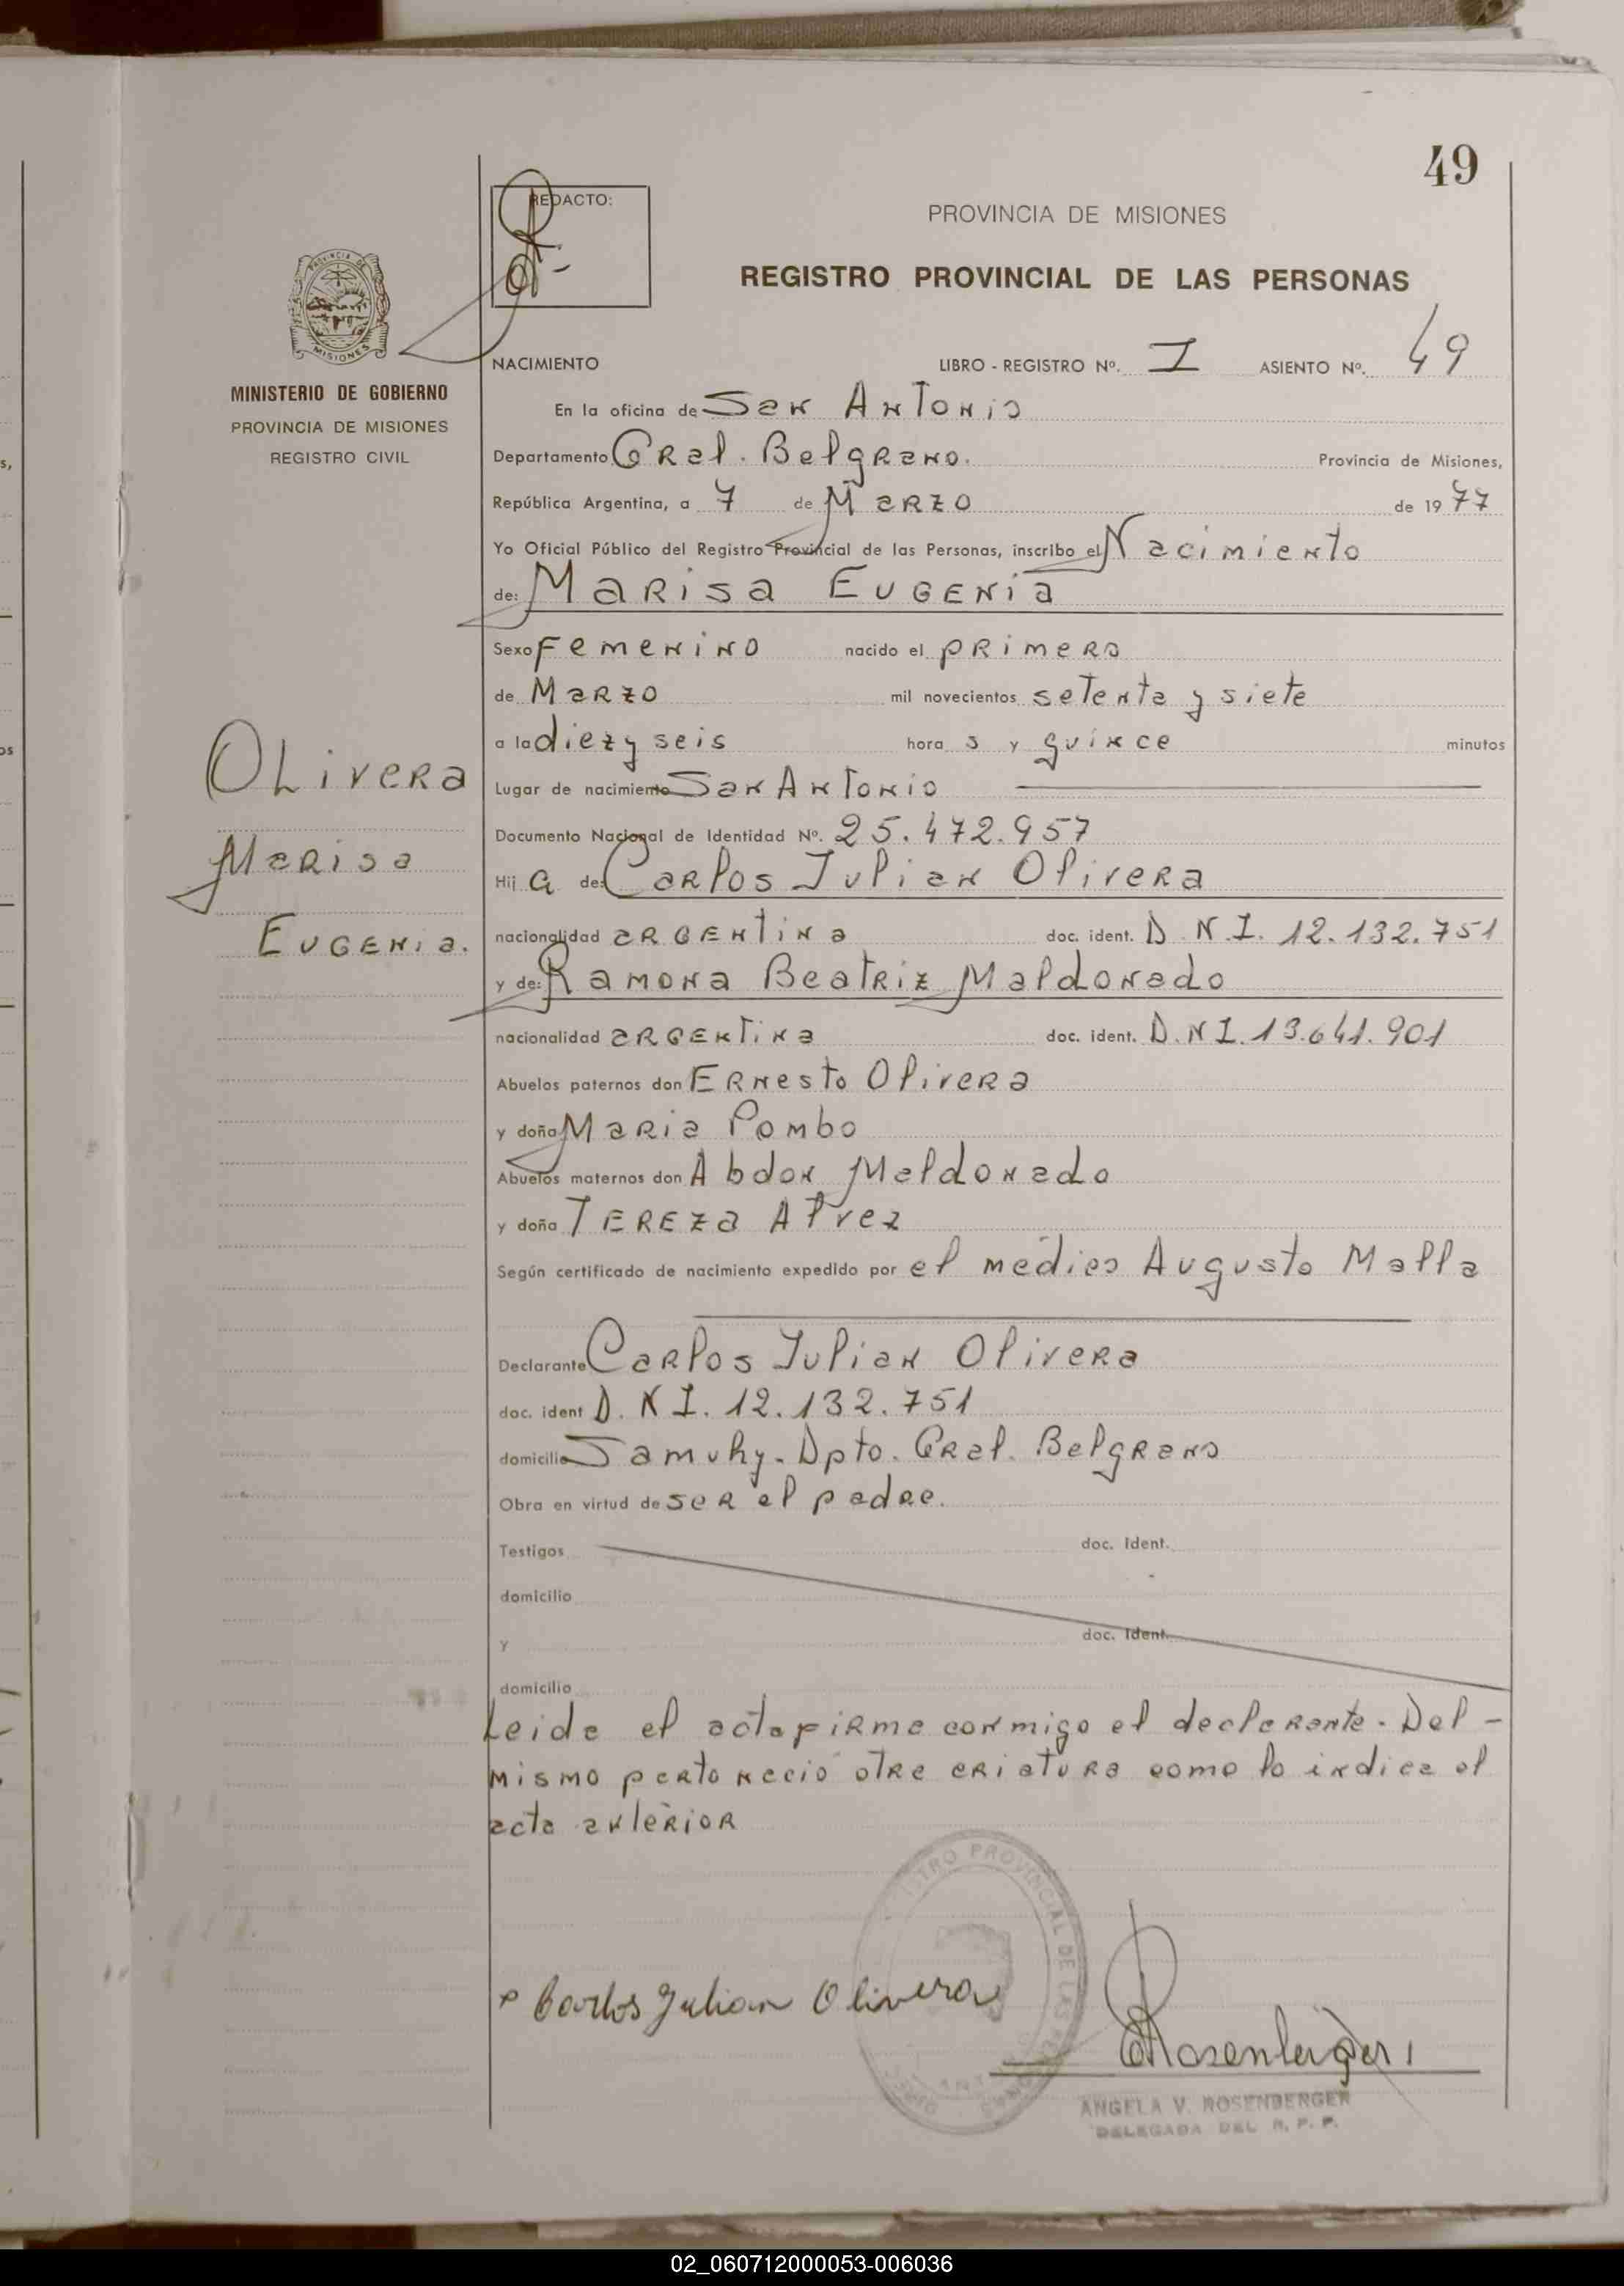 49
REDACTO:
PROVINCIA DE MISIONES
REGISTRO PROVINCIAL DE LAS PERSONAS
PROVINCIA DE MISIONES
MINISTERIO DE GOBIERNO
PROVINCIA DE MISIONES
REGISTRO CIVIL
NACIMIENTO LIBRO - REGISTRO Nº. I ASIENTO Nº. 49
En la oficina de San Antonio
Departamento Gral. Belgrano. Provincia de Misiones,
República Argentina, a 7 de Marzo de 1977
Yo Oficial Público del Registro Provincial de las Personas, inscribo el Nacimiento
de: Marisa Eugenia
Sexo Femenino nacido el primero
de Marzo mil novecientos setenta y siete
a la diez y seis hora s y quince minutos
Lugar de nacimiento San Antonio
Documento Nacional de Identidad Nº. 25.472.957
Hij a de: Carlos Julian Olivera
nacionalidad argentina doc. ident. D.N.I. 12.132.751
y de: Ramona Beatriz Maldonado
nacionalidad argentina doc. ident. D.N.I. 13.641.901
Abuelos paternos don Ernesto Olivera
y doña Maria Pombo
Abuelos maternos don Abdon Maldonado
y doña Tereza Alvez
Según certificado de nacimiento expedido por el médico Augusto Malla
Declarante Carlos Julian Olivera
doc. ident D.N.I. 12.132.751
domicilio Samuhy. Dpto. Gral. Belgrano
Obra en virtud de ser el padre.
Testigos doc. Ident.
domicilio
y doc. Ident.
domicilio
Leida el acta firma conmigo el declarante. Del -
mismo parto nació otra criatura como lo indica el
acta anterior
Olivera
Marisa
Eugenia.
Carlos Julian Olivera
Rosenberger
REGISTRO PROVINCIAL DE LAS PERSONAS
ANGELA V. ROSENBERGER
DELEGADA DEL R. P. P.
02_060712000053-006036